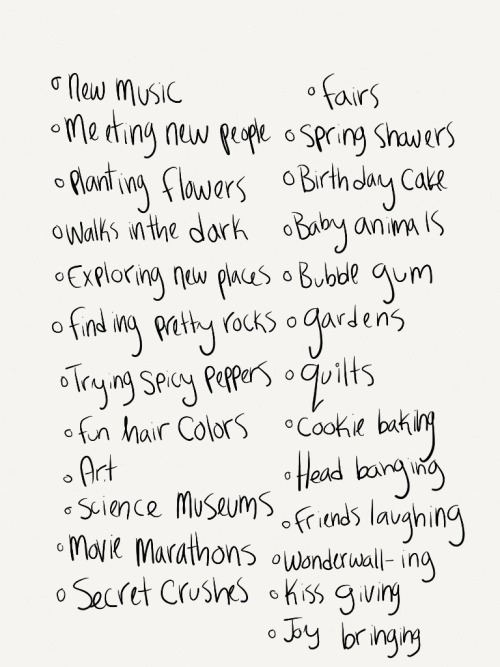 ◦ New music
◦ Meeting new people
◦ Planting flowers
◦ Walks in the dark
◦ Exploring new places
◦ finding pretty rocks
◦ Trying spicy peppers
◦ fun hair colors
◦ Art
◦ Science Museums
◦ Movie Marathons
◦ Secret Crushes
◦ fairs
◦ Spring showers
◦ Birthday Cake
◦ Baby animals
◦ Bubble gum
◦ gardens
◦ quilts
◦ Cookie baking
◦ Head banging
◦ friends laughing
◦ Wonderwall-ing
◦ Kiss giving
◦ Joy bringing